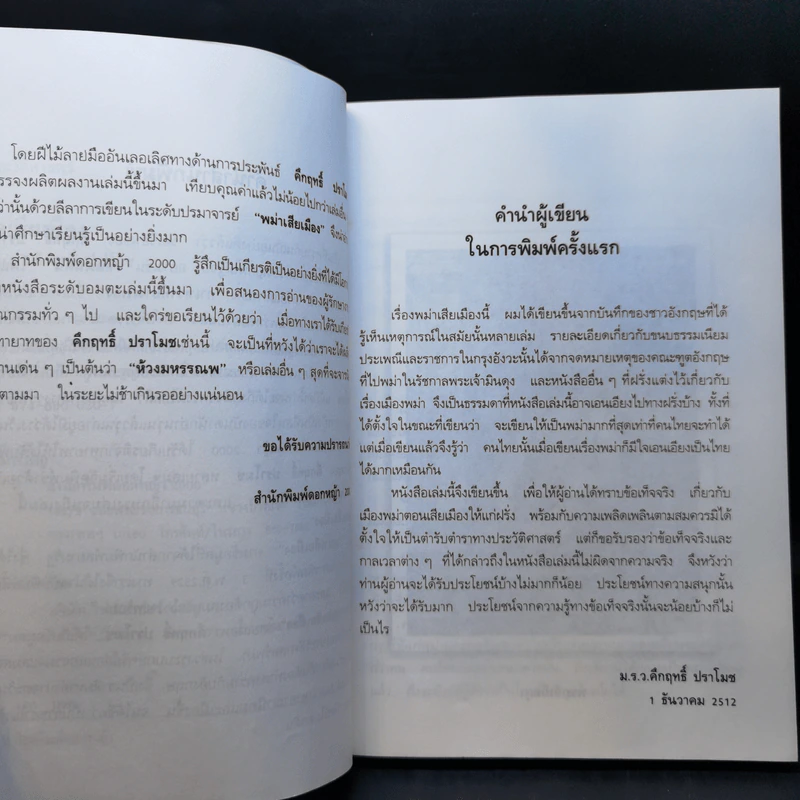 โดยฝีไม้ลายมืออันเลอเลิศทางด้านการประพันธ์ คึกฤทธิ์ ปราโม
รรจงผลิตผลงานเล่มนี้ขึ้นมา เทียบคุณค่าแล้วไม่น้อยไปกว่าเล่มอื่น
ว่านั้นด้วยลีลาการเขียนในระดับปรมาจารย์ "พม่าเสียเมือง" จึงน่า
น่าศึกษาเรียนรู้เป็นอย่างยิ่งมาก
สำนักพิมพ์ดอกหญ้า 2000 รู้สึกเป็นเกียรติเป็นอย่างยิ่งที่ได้มีโอก
หนังสือระดับอมตะเล่มนี้ขึ้นมา เพื่อสนองการอ่านของผู้รักการ
ณกรรมทั่ว ๆ ไป และใคร่ขอเรียนไว้ด้วยว่า เมื่อทางเราได้รับเกีย
ทายาทของ คึกฤทธิ์ ปราโมชเช่นนี้ จะเป็นที่หวังได้ว่าเราจะได้
านเด่น ๆ เป็นต้นว่า "ห้วงมหรรณพ" หรือเล่มอื่น ๆ สุดที่จะจาร
ตามมา ในระยะไม่ช้าเกินรออย่างแน่นอน
ขอได้รับความปรารถน
สำนักพิมพ์ดอกหญ้า 20
คำนำผู้เขียน
ในการพิมพ์ครั้งแรก
เรื่องพม่าเสียเมืองนี้ ผมได้เขียนขึ้นจากบันทึกของชาวอังกฤษที่ได้
รู้เห็นเหตุการณ์ในสมัยนั้นหลายเล่ม รายละเอียดเกี่ยวกับขนบธรรมเนียม
ประเพณีและราชการในกรุงอังวะนั้นได้จากจดหมายเหตุของคณะทูตอังกฤษ
ที่ไปพม่าในรัชกาลพระเจ้ามินดุง และหนังสืออื่น ๆ ที่ฝรั่งแต่งไว้เกี่ยวกับ
เรื่องเมืองพม่า จึงเป็นธรรมดาที่หนังสือเล่มนี้อาจเอนเอียงไปทางฝรั่งบ้าง ทั้งที่
ได้ตั้งใจในขณะที่เขียนว่า จะเขียนให้เป็นพม่ามากที่สุดเท่าที่คนไทยจะทำได้
แต่เมื่อเขียนแล้วจึงรู้ว่า คนไทยนั้นเมื่อเขียนเรื่องพม่าก็มีใจเอนเอียงเป็นไทย
ได้มากเหมือนกัน
หนังสือเล่มนี้จึงเขียนขึ้น เพื่อให้ผู้อ่านได้ทราบข้อเท็จจริง เกี่ยวกับ
เมืองพม่าตอนเสียเมืองให้แก่ฝรั่ง พร้อมกับความเพลิดเพลินตามสมควรมิได้
ตั้งใจให้เป็นตำรับตำราทางประวัติศาสตร์ แต่ก็ขอรับรองว่าข้อเท็จจริงและ
กาลเวลาต่าง ๆ ที่ได้กล่าวถึงในหนังสือเล่มนี้ไม่ผิดจากความจริง จึงหวังว่า
ท่านผู้อ่านจะได้รับประโยชน์บ้างไม่มากก็น้อย ประโยชน์ทางความสนุกนั้น
หวังว่าจะได้รับมาก ประโยชน์จากความรู้ทางข้อเท็จจริงนั้นจะน้อยบ้างก็ไม่
เป็นไร
ม.ร.ว.คึกฤทธิ์ ปราโมช
1 ธันวาคม 2512